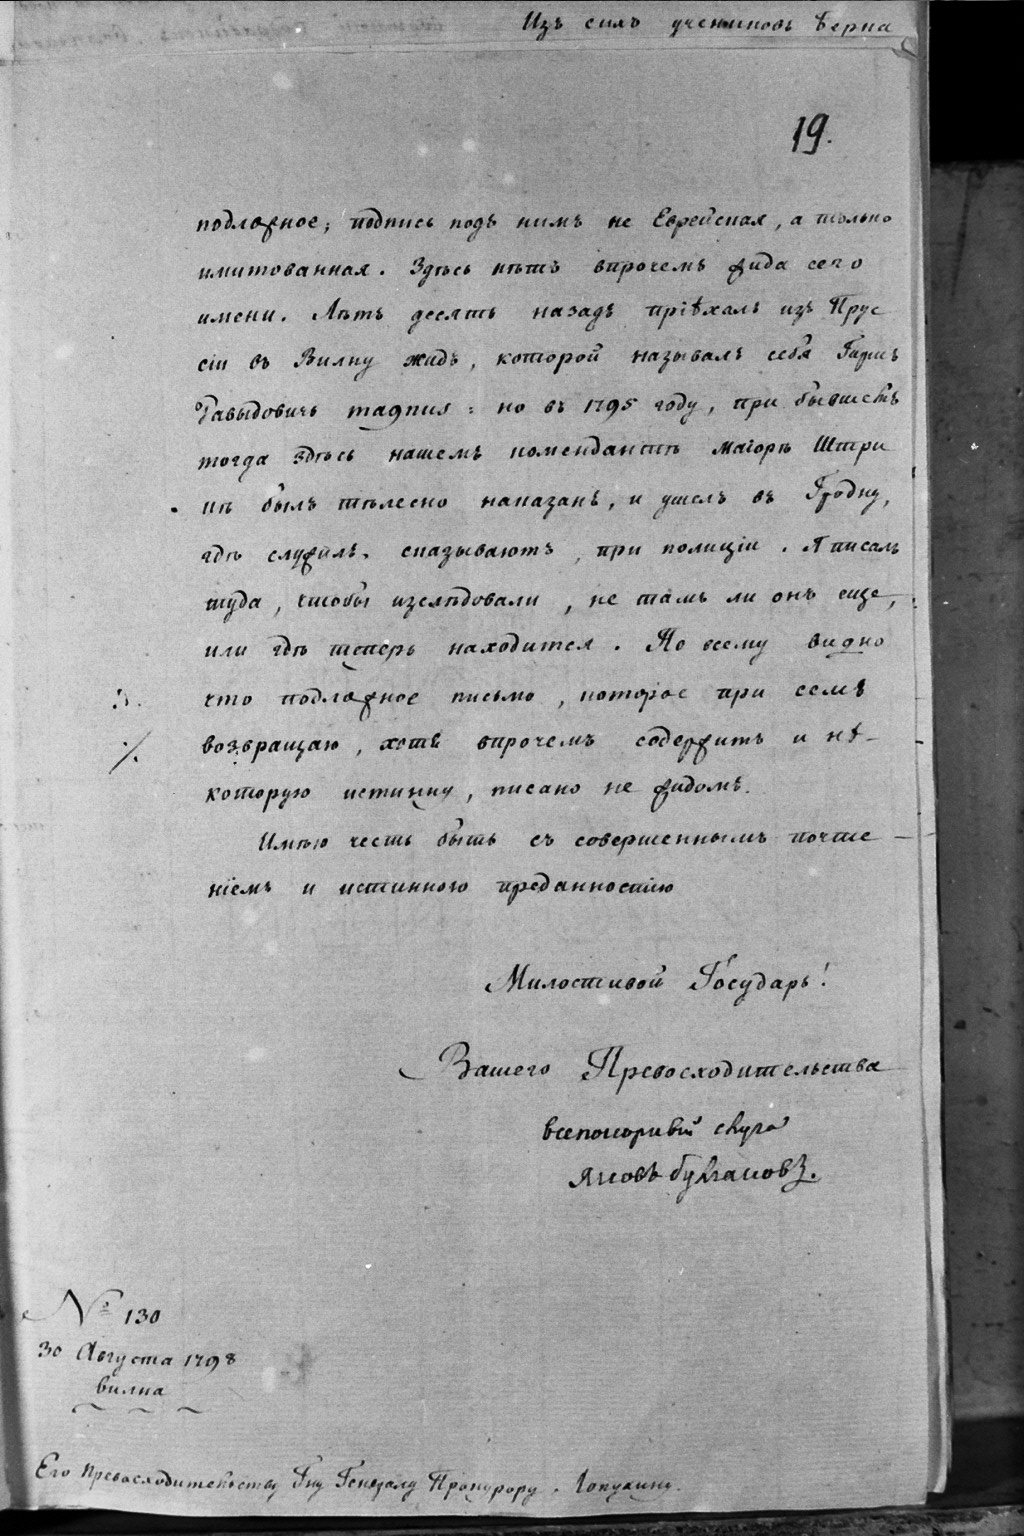 Изъ сихъ учениковъ Берка
19.
подложное; подпись подъ нимъ не Еврейская, а только
имитованная. Здѣсь нѣтъ впрочемъ жида сего
имени. Лѣтъ десять назадъ пріѣхалъ изъ Прус
сіи въ Вилну жидъ, которой называлъ себя Гариъ
Давыдовичь : но въ 1795 году, при бывшемъ
тогда здѣсь нашемъ комендантѣ маіорѣ Штри
кѣ былъ тѣлесно наказанъ, и ушелъ въ Гродну,
гдѣ служилъ, сказываютъ, при полиціи. Я писалъ
туда, чтобы изслѣдовали, не тамъ ли онъ еще,
или гдѣ теперь находится. По всему видно
что подложное письмо, которое при семъ
возвращаю, хотя впрочемъ содержитъ и нѣ-
которую истинну, писано не жидомъ.
Имѣю честь быть съ совершеннымъ почте
ніемъ и истинною преданностію
Милостивой Государь!
Вашего Превосходительства
всепокорнѣй слуга
Яковъ Булгаковъ.
№ 130
30 Августа 1798
Вилна
Его Превосходительству Гну Генералу Прокурору. Лопухину.